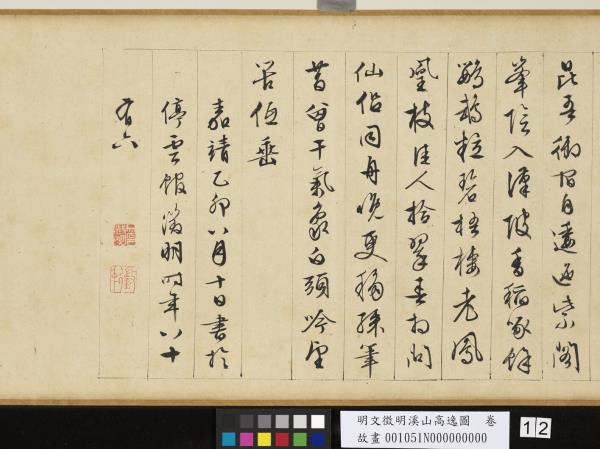 昆吾御宿自逶迤紫閣
峯陰入渼陂香稻啄餘
鸚鵡粒碧梧棲老鳳
凰枝佳人拾翠春相問
仙侶同舟晚更移綵筆
昔曾干氣象白頭吟望
苦低垂
嘉靖乙卯八月十日書於
停雲館徵明時年八十
有六
明文徵明溪山高逸圖 卷
故畫 001051N000000000
12